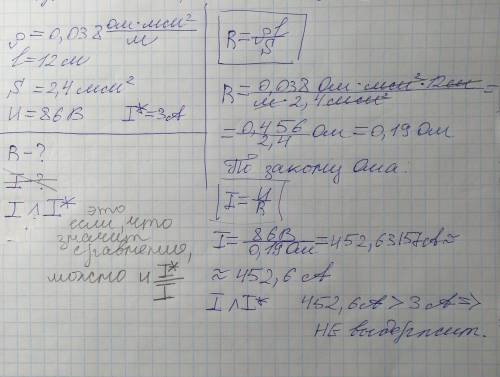 ρ = 0,038 Ом·мм²/м
l = 12 м
S = 2,4 мм²
U = 86 В   I* = 3 А
R - ?
I - ?
I ∧ I*
это
если, что
значит
сравнения,
можно и I*/I
R = ρl/S
R = 0,038 Ом · мм² · 12 м / м · 2,4 мм² =
= 0,456/2,4 Ом = 0,19 Ом
По закону Ома:
I = U/R
I = 86 В/0,19 Ом = 452,63157 А ≈
≈ 452,6 А
I ∧ I*   452,6 А > 3 А =>
НЕ выдержит.